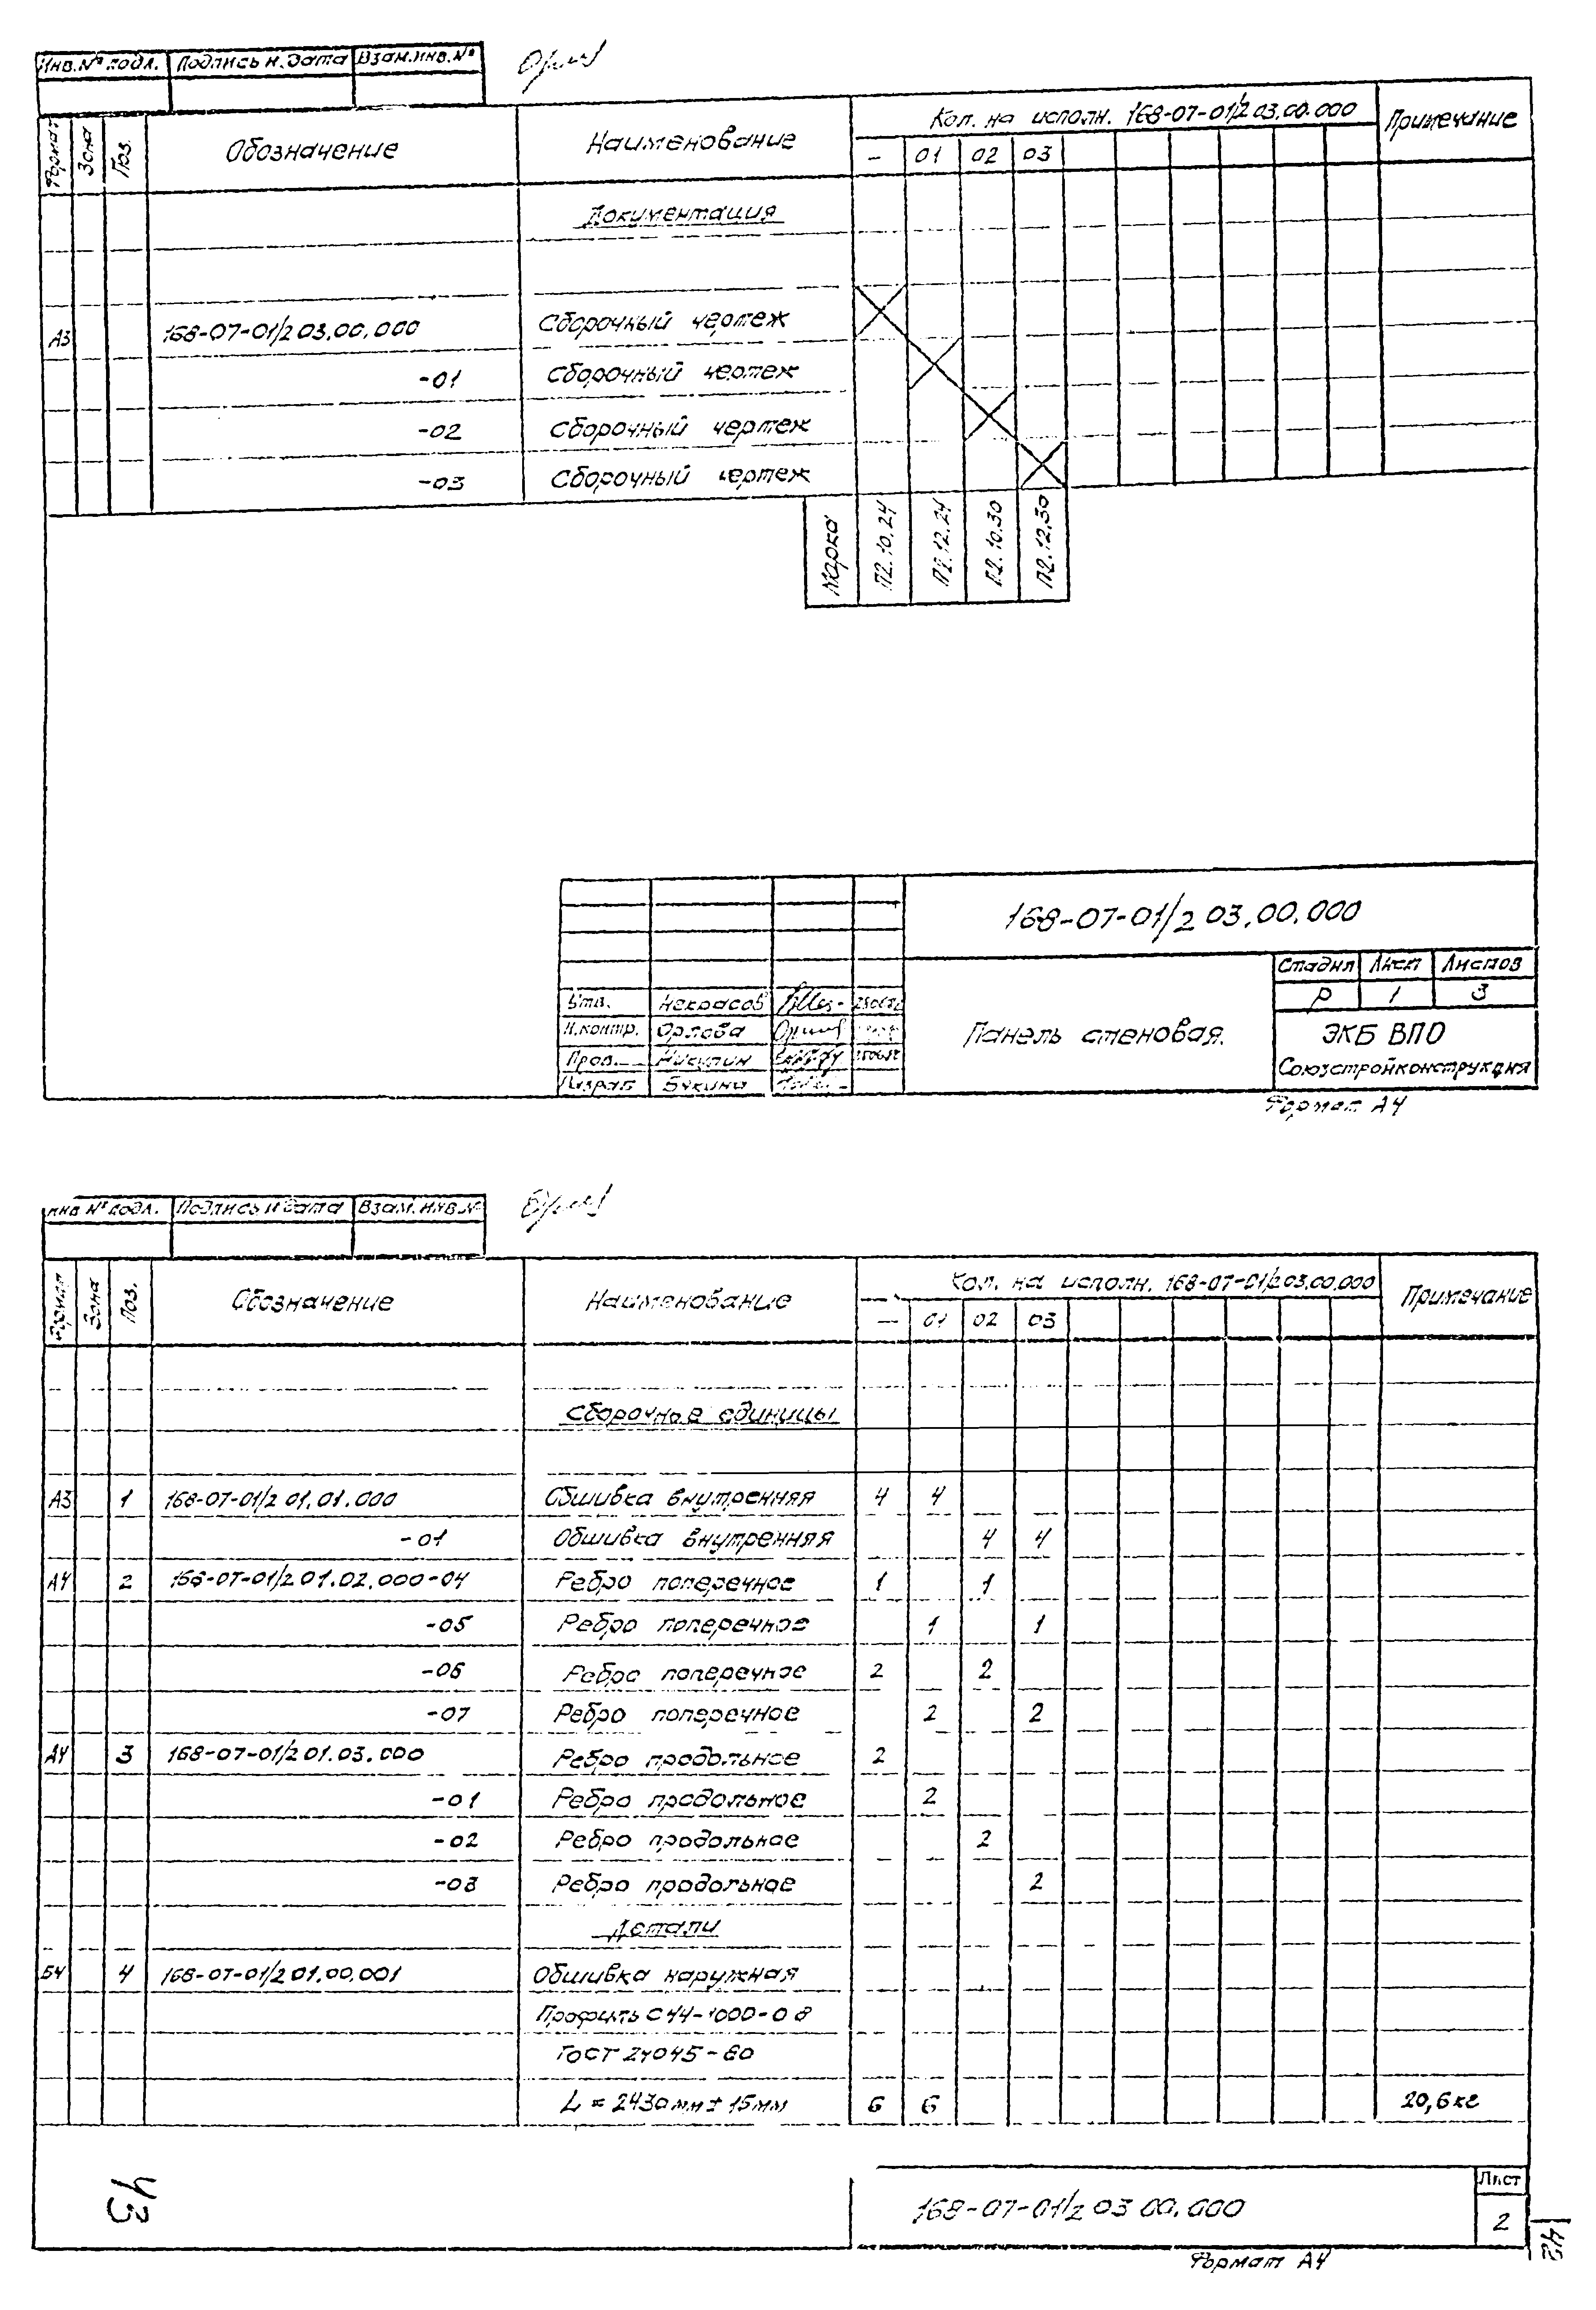 Инв.№ подл. Подпись и дата Взам.инв.№
Формат Зона Поз. Обозначение Наименование Кол. на исполн. 168-07-01/2 03.00.000 Примечание
- 01 02 03
Документация
А3 168-07-01/2 03.00.000 Сборочный чертеж
-01 Сборочный чертеж
-02 Сборочный чертеж
-03 Сборочный чертеж
Марка П2.10.24 П2.12.24 П2.10.30 П2.12.30
168-07-01/2 03.00.000
Стадия Лист Листов
Р 1 3
Утв. Некрасов
Н.контр. Орлова
Пров. Никулин
Разраб Букина
Панель стеновая.
ЭКБ ВПО
Союзстройконструкция
Формат А4
Инв № подл. Подпись и дата Взам.инв.№
Формат Зона Поз. Обозначение Наименование Кол. на исполн. 168-07-01/2 03.00.000 Примечание
- 01 02 03
Сборочные единицы
А3 1 168-07-01/2 01.01.000 Обшивка внутренняя 4 4
-01 Обшивка внутренняя 4 4
А4 2 168-07-01/2 01.02.000-04 Ребро поперечное 1 1
-05 Ребро поперечное 1 1
-06 Ребро поперечное 2 2
-07 Ребро поперечное 2 2
А4 3 168-07-01/2 01.03.000 Ребро продольное 2
-01 Ребро продольное 2
-02 Ребро продольное 2
-03 Ребро продольное 2
Детали
БЧ 4 168-07-01/2 01.00.001 Обшивка наружная
Профиль С44-1000-0 8
ГОСТ 24045-80
L = 2430мм ± 15мм 6 6 20,6 кг
43
168-07-01/2 03 00.000
Лист
2
42
Формат А4